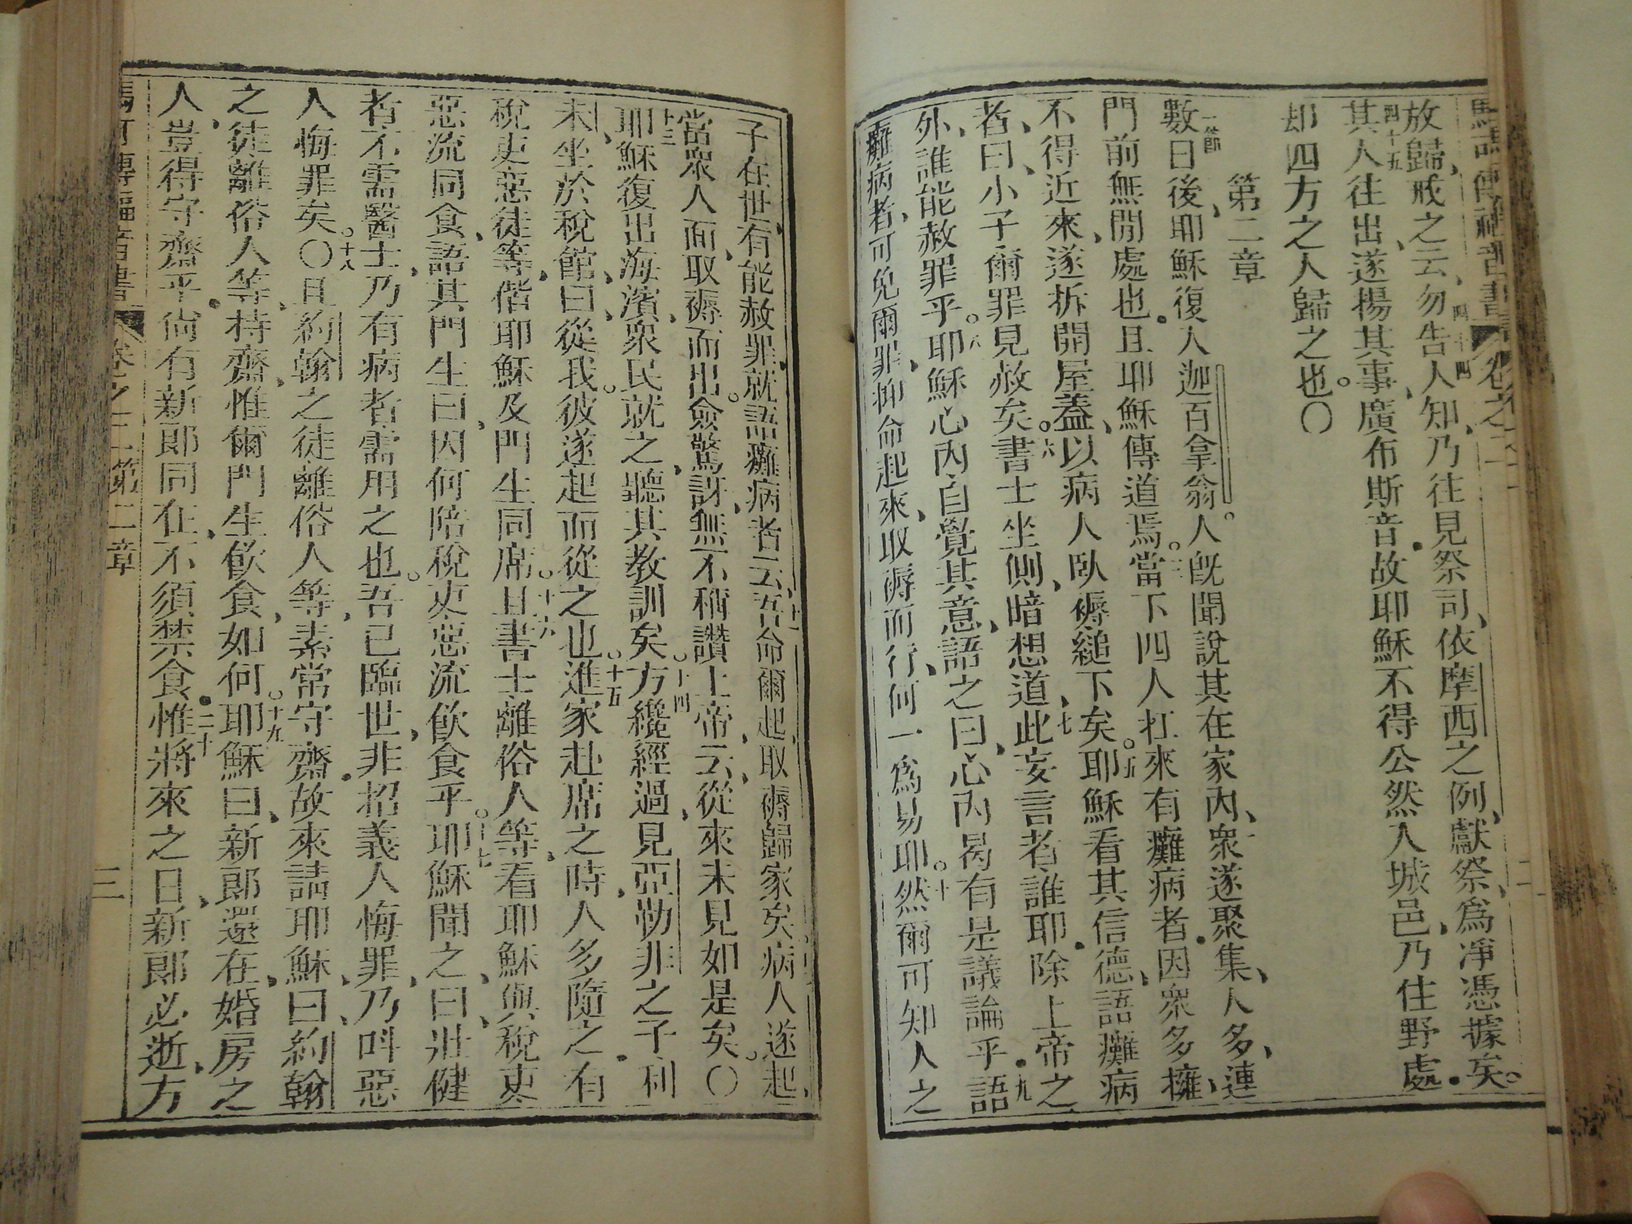 放歸、戒之云、勿告人知、乃往見祭司、依摩西之例、獻祭、爲凈憑據矣。
四十五
其人往出、遂揚其事、廣布斯音、故耶穌不得公然入城邑、乃住野處、
却四方之人歸之也。〇
第二章
一節
數日後、耶穌復入迦百拿翁。人旣聞說其在家內、衆遂聚集、人多、連
門前無閒處也、且耶穌傳道焉。三當下四人扛來有癱病者、因衆多擁、
不得近來、遂拆開屋蓋、以病人臥褥縋下矣。五耶穌看其信德、語癱病
者、曰、小子爾罪見赦矣。六書士坐側、暗想道、七此妄言者誰耶、除上帝之
外、誰能赦罪乎。八耶穌心內自覺其意、語之曰、心內曷有是議論乎、九語
癱病者、可免爾罪、抑命起來、取褥而行、何一爲易耶。十然爾可知人之
子在世、有能赦罪、就語癱病者云、十一吾命爾起、取褥歸家矣。十二病人遂起、
當衆人面、取褥而出。僉驚訝、無不稱讚上帝、云、從來未見如是矣。〇
十三
耶穌復出海濱、衆民就之、聽其教訓矣。十四方纔經過、見亞勒非之子利
未、坐於稅館、曰、從我。彼遂起而從之也。十五進家赴席之時、人多隨之、有
稅吏惡徒等、偕耶穌及門生同席。十六且書士離俗人等、看耶穌與稅吏
惡流同食、語其門生曰、因何陪稅吏惡流飮食乎。十七耶穌聞之、曰、壯健
者不需醫士、乃有病者需用之也。吾已臨世、非招義人悔罪、乃呌惡
人悔罪矣。〇十八且約翰之徒離俗人等、素常守齋、故來詰耶穌、曰、約翰
之徒、離俗人等、持齋、惟爾門生飮食、如何。十九耶穌曰、新郞還在、婚房之
人、豈得守齋乎、尙有新郞同在、不須禁食、二十惟將來之日、新郞必逝、方
馬可傳福音書 卷之二 第二章 三